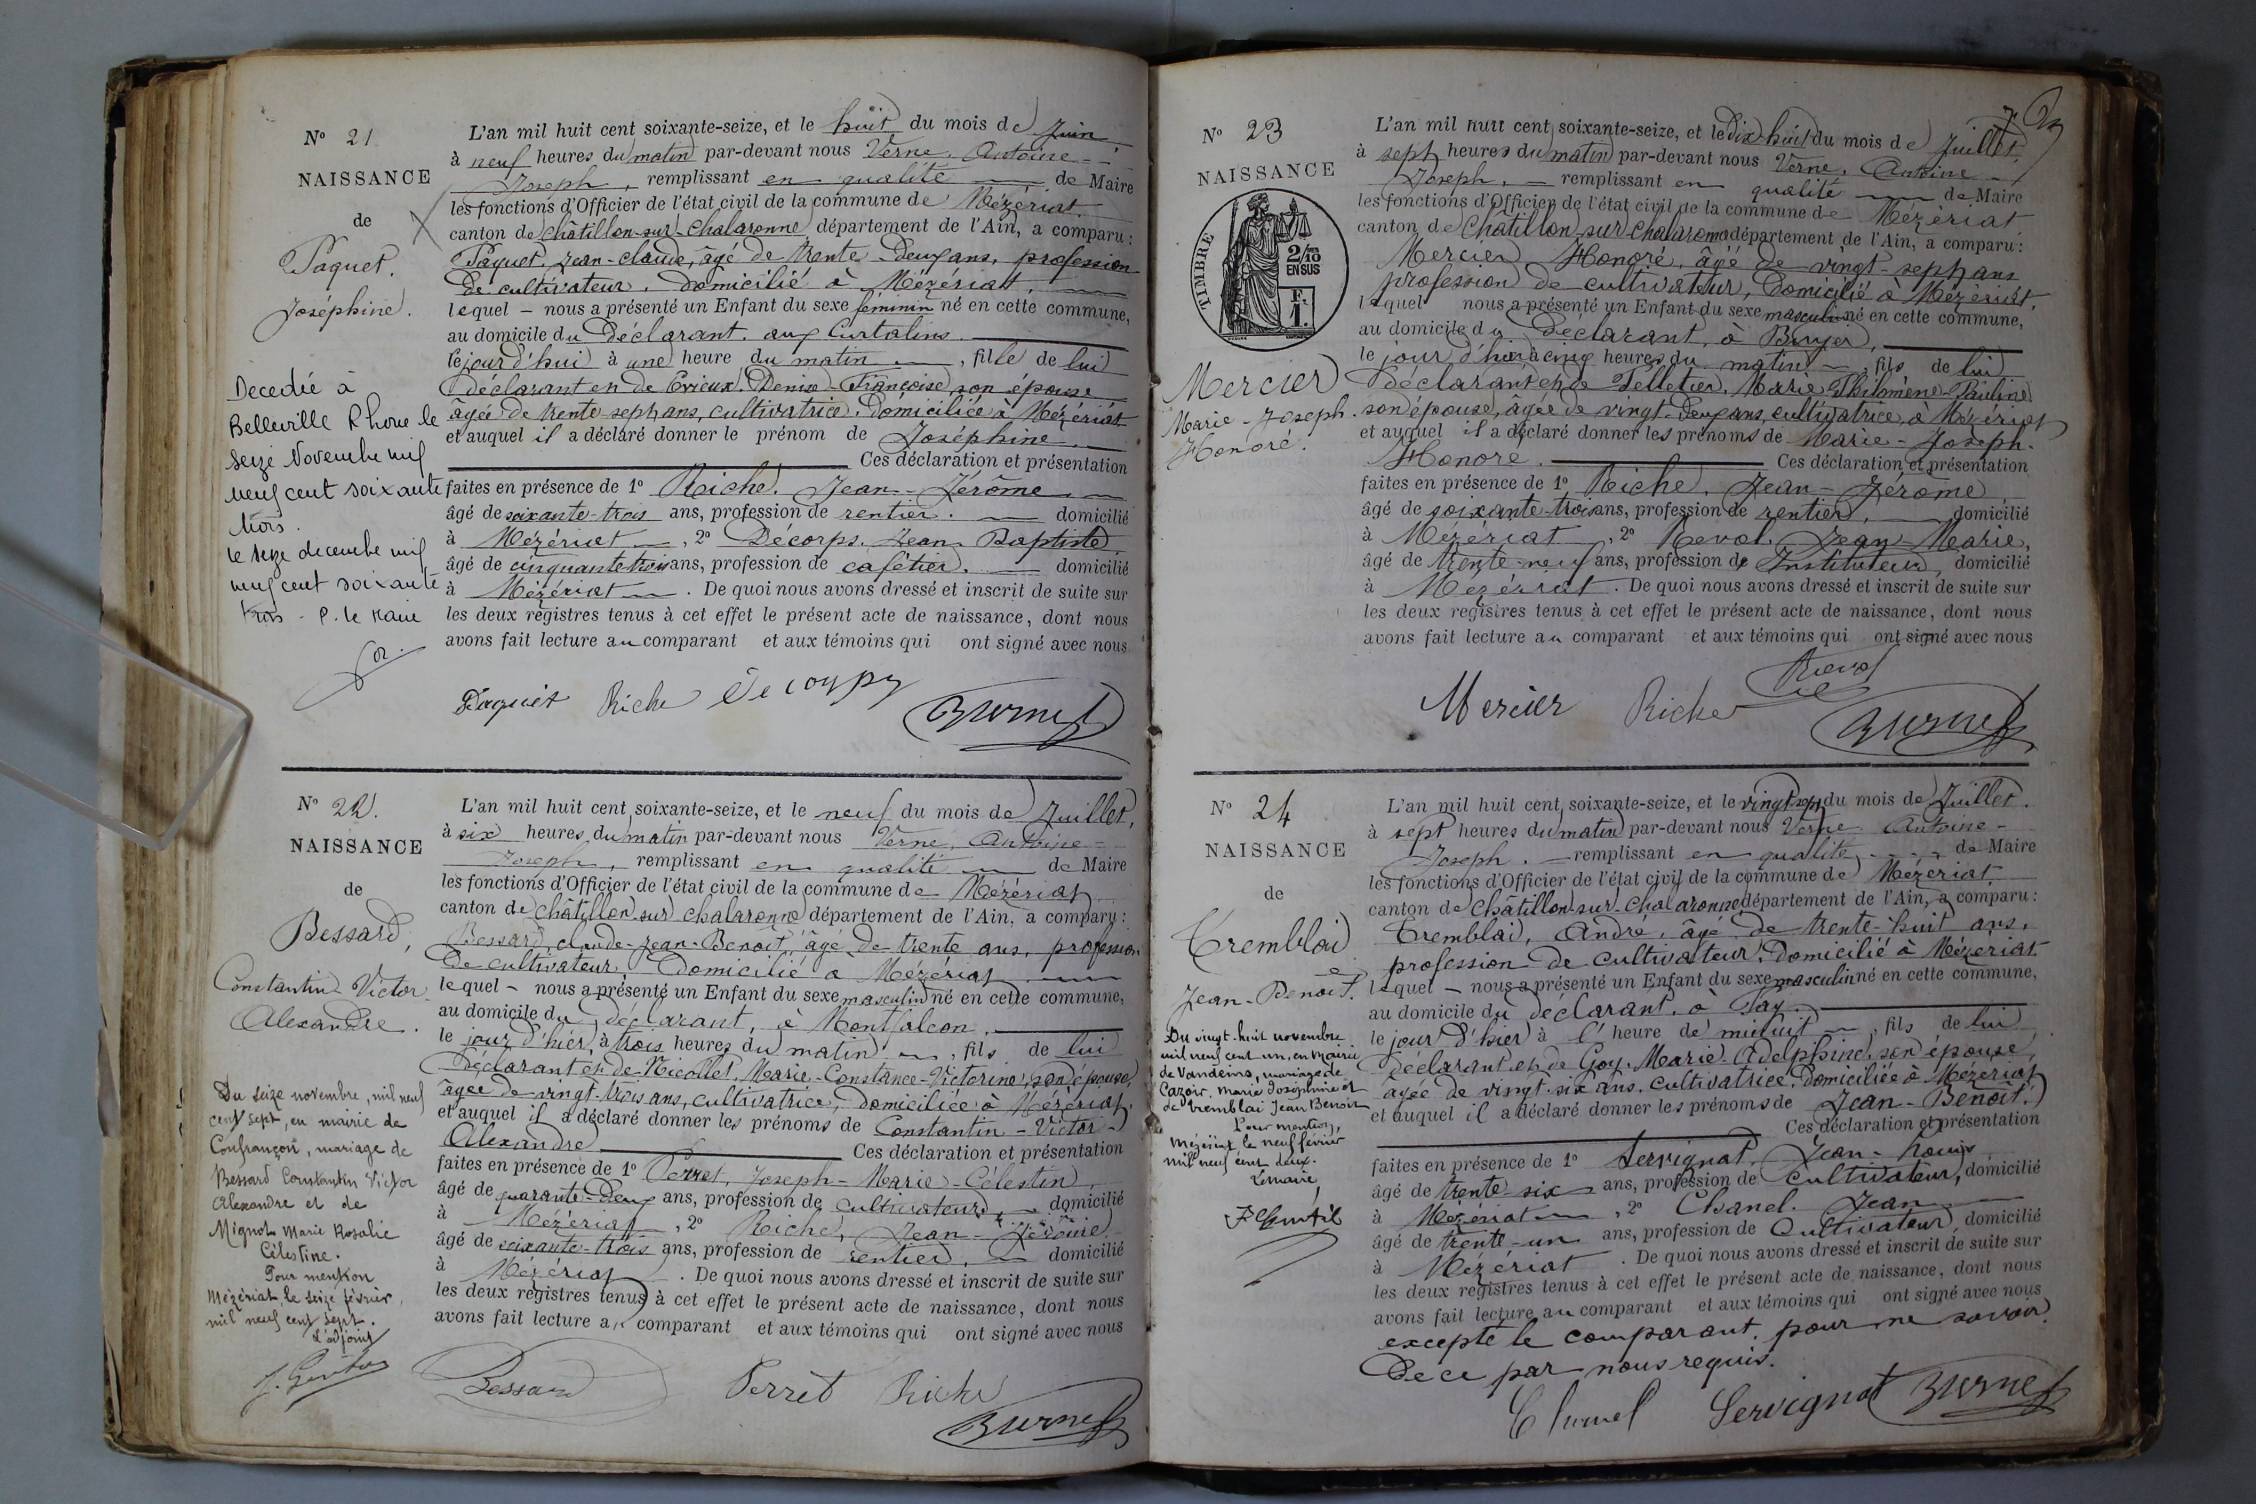 N° 21
NAISSANCE
de
Paquet.
Joséphine.
Decedée à
Belleville Rhone le
seize Novembre mil
neuf cent soixante
trois.
le seize decembre mil
neuf cent soixante
trois - P. le Maire
L'an mil huit cent soixante-seize, et le huit du mois de Juin,
à neuf heures du matin par-devant nous Verne, Antoine-
Joseph, remplissant en qualité de Maire
les fonctions d'Officier de l'état civil de la commune de Mézériat
canton de Châtillon-sur-Chalaronne département de l'Ain, a comparu:
Paquet, Jean-Claude, âgé de trente-deux ans, profession
de cultivateur, domicilié à Mézériat,
lequel — nous a présenté un Enfant du sexe féminin né en cette commune,
au domicile du Déclarant, aux Curtalins
le jour d'hui à une heure du matin, fille de lui
déclarant et de Evieux, Denise-Françoise son épouse
âgée de trente-sept ans, cultivatrice, domiciliée à Mézériat
et auquel il a déclaré donner le prénom de Joséphine.
Ces déclaration et présentation
faites en présence de 1° Riche, Jean-Jérôme,
âgé de soixante-trois ans, profession de rentier, domicilié
à Mézériat, 2° Décorps, Jean Baptiste
âgé de cinquante trois ans, profession de cafetier, domicilié
à Mézériat. De quoi nous avons dressé et inscrit de suite sur
les deux registres tenus à cet effet le présent acte de naissance, dont nous
avons fait lecture au comparant et aux témoins qui ont signé avec nous
Paquet Riche Decorps Verne
N° 22.
NAISSANCE
de
Bessard,
Constantin-Victor
Alexandre.
Du seize novembre, mil neuf
cent sept, en mairie de
Confrançon, mariage de
Bessard Constantin Victor
Alexandre et de
Mignot Marie Rosalie
Célestine.
Pour mention
Mézériat, le seize février
mil neuf cent sept.
L'adjoint
L'an mil huit cent soixante-seize, et le neuf du mois de Juillet,
à six heures du matin par-devant nous Verne, Antoine-
Joseph, remplissant en qualité de Maire
les fonctions d'Officier de l'état civil de la commune de Mézériat
canton de Châtillon-sur-Chalaronne département de l'Ain, a comparu:
Bessard, Claude-Jean-Benoît, âgé de trente ans, profession
de cultivateur, domicilié à Mézériat
lequel — nous a présenté un Enfant du sexe masculin né en cette commune,
au domicile du déclarant, à Montfalcon,
le jour d'hier, à trois heures du matin, fils de lui
Déclarant et de Nicollet, Marie-Constance-Victorine, son épouse,
âgée de vingt-trois ans, cultivatrice, domiciliée à Mézériat,
et auquel il a déclaré donner les prénoms de Constantin-Victor-
Alexandre Ces déclaration et présentation
faites en présence de 1° Perret, Joseph-Marie-Célestin,
âgé de quarante-deux ans, profession de cultivateur, domicilié
à Mézériat, 2° Riche, Jean-Jérôme
âgé de soixante-trois ans, profession de rentier, domicilié
à Mézériat. De quoi nous avons dressé et inscrit de suite sur
les deux registres tenus à cet effet le présent acte de naissance, dont nous
avons fait lecture au comparant et aux témoins qui ont signé avec nous
Bessard Perret Riche
Verne
N° 23
NAISSANCE
TIMBRE
2/10
EN SUS
F.
1.
Mercier
Marie-Joseph.
Honoré.
L'an mil huit cent soixante-seize, et le dix-huit du mois de Juillet,
à sept heures du matin par-devant nous Verne, Antoine-
Joseph, — remplissant en qualité de Maire
les fonctions d'Officier de l'état civil de la commune de Mézériat
canton de Châtillon-sur-Chalaronne département de l'Ain, a comparu:
Mercier Honoré, âgé de vingt-sept ans
profession de cultivateur, domicilié à Mézériat,
lequel nous a présenté un Enfant du sexe masculin né en cette commune,
au domicile du Déclarant, à Buyer,
le jour d'hier à cinq heures du matin, fils de lui
déclarant et de Pelletier, Marie Philomène-Pauline
son épouse, âgée de vingt-deux ans, cultivatrice, à Mézériat
et auquel il a déclaré donner les prénoms de Marie-Joseph-
Honoré. Ces déclaration et présentation
faites en présence de 1° Riche, Jean-Jérôme,
âgé de soixante-trois ans, profession de rentier, domicilié
à Mézériat, 2° Revol, Jean-Marie,
âgé de trente-neuf ans, profession de Instituteur, domicilié
à Mézériat. De quoi nous avons dressé et inscrit de suite sur
les deux registres tenus à cet effet le présent acte de naissance, dont nous
avons fait lecture au comparant et aux témoins qui ont signé avec nous
Revol
Mercier Riche Verne
N° 24
NAISSANCE
de
Tremblai
Jean-Benoit.
Du vingt-huit novembre
mil neuf cent un, en mairie
de Vandeins, mariage de
Cazoir Marie Joséphine et
de Tremblai Jean Benoit
Pour mention,
Mézériat le neuf février
mil neuf cent deux.
Le maire,
L'an mil huit cent soixante-seize, et le vingt-sept du mois de Juillet.
à sept heures du matin par-devant nous Verne Antoine-
Joseph. — remplissant en qualité de Maire
les fonctions d'Officier de l'état civil de la commune de Mézériat
canton de Châtillon-sur-Chalaronne département de l'Ain, a comparu:
Tremblai, André, âgé de trente-huit ans,
profession de cultivateur, domicilié à Mézériat
lequel — nous a présenté un Enfant du sexe masculin né en cette commune,
au domicile du déclarant, à Fay
le jour d'hier à l'heure de minuit, fils de lui
déclarant et de Goy, Marie-Adelphine, son épouse,
âgée de vingt-six ans, cultivatrice, domiciliée à Mézériat
et auquel il a déclaré donner les prénoms de Jean-Benoît.
Ces déclaration et présentation
faites en présence de 1° Servignat, Jean-Louis
âgé de trente-six ans, profession de cultivateur, domicilié
à Mézériat, 2° Chanel, Jean
âgé de trente-un ans, profession de Cultivateur, domicilié
à Mézériat. De quoi nous avons dressé et inscrit de suite sur
les deux registres tenus à cet effet le présent acte de naissance, dont nous
avons fait lecture au comparant et aux témoins qui ont signé avec nous
excepté le comparant, pour ne savoir,
de ce par nous requis.
Chanel Servignat Verne